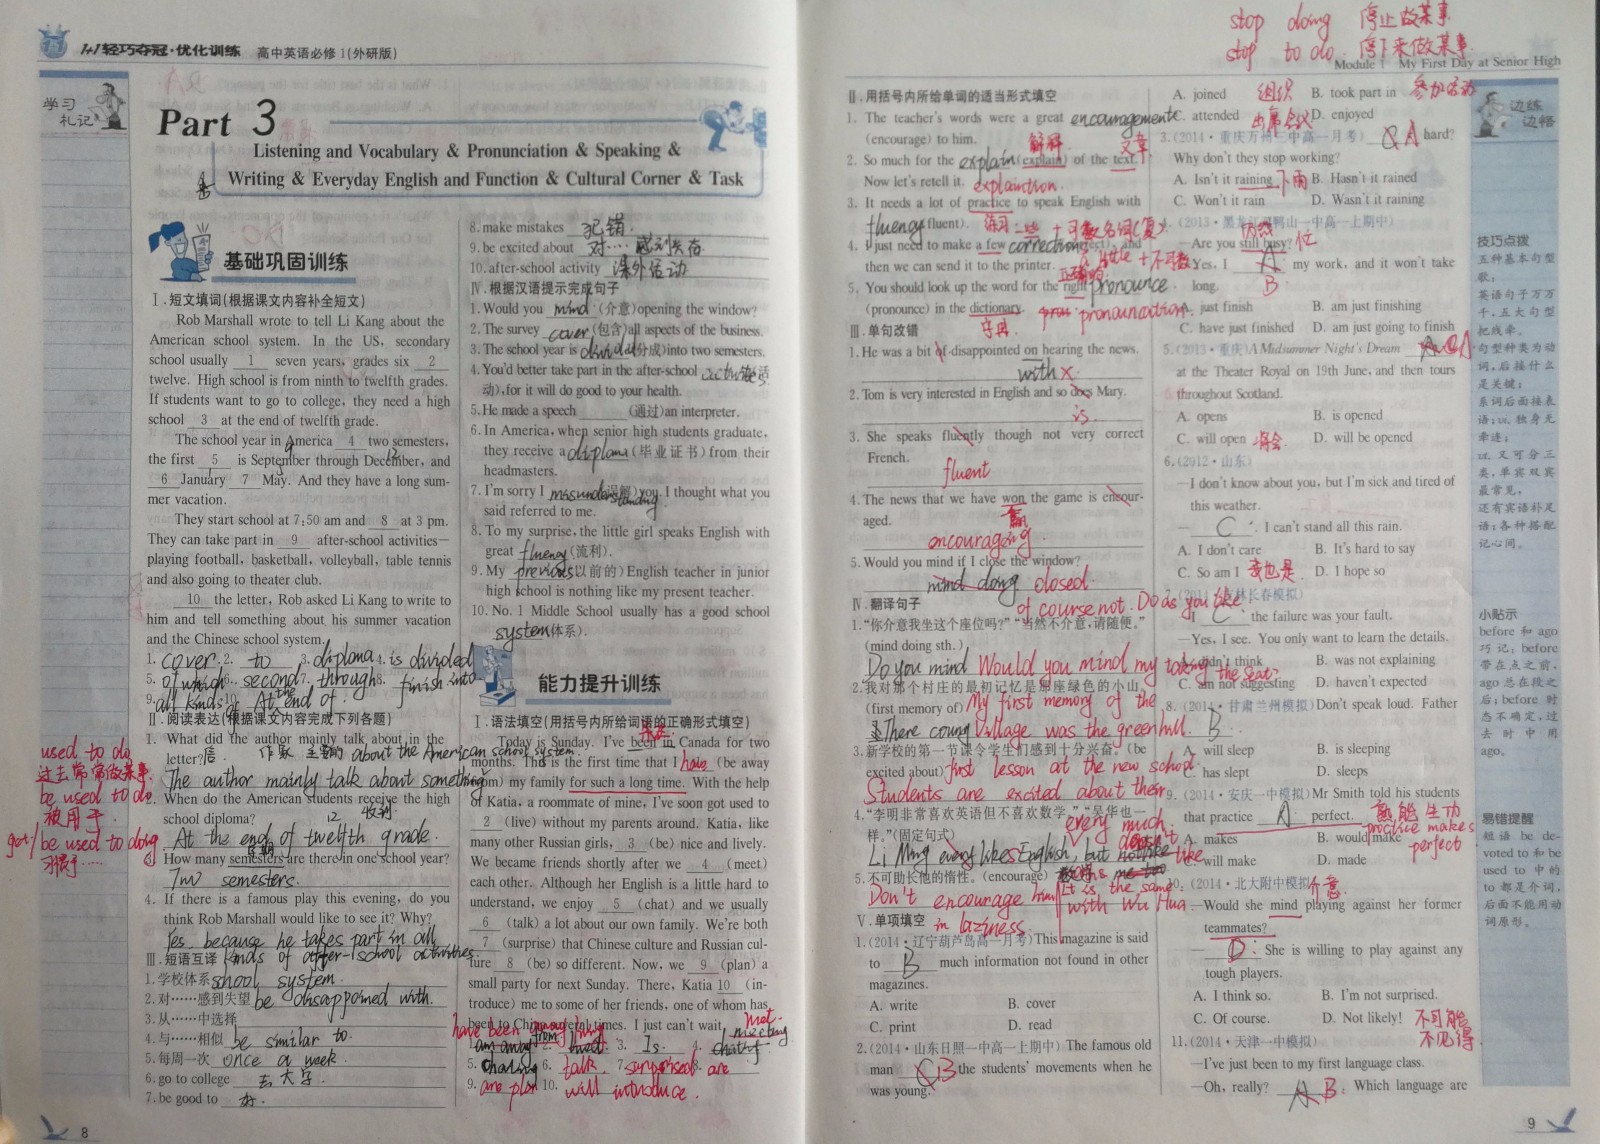 1+1轻巧夺冠·优化训练 高中英语必修1(外研版)
学习
札记
Part 3
Listening and Vocabulary & Pronunciation & Speaking &
Writing & Everyday English and Function & Cultural Corner & Task
基础巩固训练
Ⅰ.短文填词(根据课文内容补全短文)
Rob Marshall wrote to tell Li Kang about the
American school system. In the US, secondary
school usually 1 seven years, grades six 2
twelve. High school is from ninth to twelfth grades.
If students want to go to college, they need a high
school 3 at the end of twelfth grade.
The school year in America 4 two semesters,
9 12
the first 5 is September through December, and
6 January 7 May. And they have a long sum-
mer vacation.
They start school at 7:50 am and 8 at 3 pm.
They can take part in 9 after-school activities—
playing football, basketball, volleyball, table tennis
and also going to theater club.
10 the letter, Rob asked Li Kang to write to
him and tell something about his summer vacation
and the Chinese school system.
1. cover. 2. to 3. diploma 4. is divided into
5. of which 6. second 7. through 8. finish
9. all kinds of 10. At the end of.
Ⅱ.阅读表达(根据课文内容完成下列各题)
1. What did the author mainly talk about in the
letter? 信 作家 主要的 about the American school system.
The author mainly talk about something
2. When do the American students receive the high
school diploma? 收到
12
At the end of twelfth grade.
3. How many semesters are there in one school year?
Two semesters.
4. If there is a famous play this evening, do you
think Rob Marshall would like to see it? Why?
Yes, because he takes part in all
kinds of after-school activities.
used to do
过去常常做某事
be used to do
被用于
got/be used to doing
习惯于……
Ⅲ.短语互译
1.学校体系 school system.
2.对……感到失望 be disappomed with.
3.从……中选择
4.与……相似 be similar to.
5.每周一次 once a week.
6.go to college 去大学.
7.be good to 好.
8
8.make mistakes 犯错.
9.be excited about 对……感到兴奋
10.after-school activity 课外活动
Ⅳ.根据汉语提示完成句子
1.Would you mind (介意)opening the window?
2.The survey cover (包含)all aspects of the business.
3.The school year is divided (分成)into two semesters.
4.You'd better take part in the after-school activities (活
动),for it will do good to your health.
5.He made a speech (通过)an interpreter.
6.In America, when senior high students graduate,
they receive a diploma (毕业证书) from their
headmasters.
7.I'm sorry I misunderstanding (误解)you. I thought what you
said referred to me.
8.To my surprise, the little girl speaks English with
great fluency (流利).
9.My previous (以前的) English teacher in junior
high school is nothing like my present teacher.
10.No. 1 Middle School usually has a good school
system (体系).
能力提升训练
Ⅰ.语法填空(用括号内所给词语的正确形式填空)
Today is Sunday. I've been in Canada for two
months. This is the first time that I have 1 (be away
from) my family for such a long time. With the help
of Katia, a roommate of mine, I've soon got used to
2 (live) without my parents around. Katia, like
many other Russian girls, 3 (be) nice and lively.
We became friends shortly after we 4 (meet)
each other. Although her English is a little hard to
understand, we enjoy 5 (chat) and we usually
6 (talk) a lot about our own family. We're both
7 (surprise) that Chinese culture and Russian cul-
ture 8 (be) so different. Now, we 9 (plan) a
small party for next Sunday. There, Katia 10 (in-
troduce) me to some of her friends, one of whom has
been to China several times. I just can't wait.
have been away from living met.
1. am away 2. 3. Is 4. meeting
5. chating 6. talk 7. surprised 8. are
9. are plan 10. will introduce.
stop doing 停止做某事
stop to do 停下来做某事
Module 1 My First Day at Senior High
Ⅱ.用括号内所给单词的适当形式填空
1. The teacher's words were a great encouragement
(encourage) to him.
解释 文章
2. So much for the explain (explain) of the text.
Now let's retell it. explaintion.
3. It needs a lot of practice to speak English with
fluency (fluent). 练习 一些 + 可数名词(复)
4. I just need to make a few correction (correct), and
then we can send it to the printer. a little + 不可数
正确的
5. You should look up the word for the right pronounce
(pronounce) in the dictionary. pronounciation
字典
Ⅲ.单句改错
1. He was a bit of disappointed on hearing the news.
with ×
2. Tom is very interested in English and so does Mary.
is.
3. She speaks fluently though not very correct
French.
fluent
4. The news that we have won the game is encour-
aged. 赢
encouraging.
5. Would you mind if I close the window?
mind doing closed.
Ⅳ.翻译句子 of course not. Do as you like.
1.“你介意我坐这个座位吗?”“当然不介意,请随便。”
(mind doing sth.)
Do you mind Would you mind my taking the seat?
2.我对那个村庄的最初记忆是那座绿色的小山。
(first memory of) My first memory of the
village was the green hill.
3.新学校的第一节课令学生们感到十分兴奋。(be
excited about) first lesson at the new school.
Students are excited about their
4.“李明非常喜欢英语但不喜欢数学。”“吴华也一
样。”(固定句式) every much.
Li Ming every likes English, but doesn't like
It is the same with Wu Hua.
5.不可助长他的惰性。(encourage)
Don't encourage him in laziness.
Ⅴ.单项填空
1.(2014·辽宁葫芦岛高一月考)This magazine is said
to B much information not found in other
magazines.
A. write B. cover
C. print D. read
2.(2014·山东日照一中高一上期中) The famous old
man C B the students' movements when he
was young.
A. joined 组织 B. took part in 参加活动
C. attended 出席会议 D. enjoyed
3.(2014·重庆万州二中高一月考) A hard?
Why don't they stop working?
A. Isn't it raining 下雨 B. Hasn't it rained
C. Won't it rain D. Wasn't it raining
4.(2013·黑龙江双鸭山一中高一上期中)
仍然
—Are you still busy? 忙
—Yes, I A my work, and it won't take
long. B
A. just finish B. am just finishing
C. have just finished D. am just going to finish
5.(2013·重庆)A Midsummer Night's Dream A
at the Theater Royal on 19th June, and then tours
throughout Scotland.
A. opens B. is opened
C. will open 将会 D. will be opened
6.(2012·山东)
—I don't know about you, but I'm sick and tired of
this weather.
— C . I can't stand all this rain.
A. I don't care B. It's hard to say
C. So am I 我也是. D. I hope so
7.(2014·吉林长春模拟)
—I C the failure was your fault.
—Yes, I see. You only want to learn the details.
A. didn't think B. was not explaining
C. am not suggesting D. haven't expected
8.(2014·甘肃兰州模拟)Don't speak loud. Father
B.
A. will sleep B. is sleeping
C. has slept D. sleeps
9.(2014·安庆一中模拟)Mr Smith told his students
that practice A perfect. 熟能生巧
A. makes B. would make practice makes perfect.
C. will make D. made
10.(2014·北大附中模拟) 介意
—Would she mind playing against her former
teammates?
— D . She is willing to play against any
tough players.
A. I think so. B. I'm not surprised.
C. Of course. D. Not likely! 不可能 不见得.
11.(2014·天津一中模拟)
—I've just been to my first language class.
—Oh, really? A B. Which language are
边练
边悟
技巧点拨
五种基本句型
歌:
英语句子万万
千,五大句型
把线牵。
句型种类为动
词,后接什么
是关键;
系词后面接表
语;vi.独身无
牵连;
vt.又可分三
类,单宾双宾
最常见,
还有宾语补足
语;各种搭配
记心间。
小贴示
before 和 ago
巧记:before
带在点之前,
ago 总在段之
后;before 时
态不确定,过
去时中用
ago。
易错提醒
短语 be de-
voted to 和 be
used to 中的
to 都是介词,
后面不能用动
词原形。
9